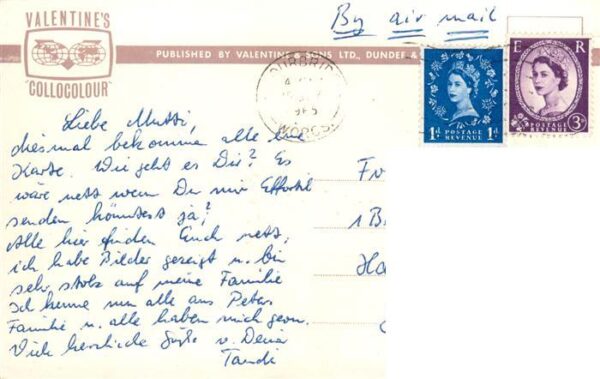 By air mail
VALENTINE'S
"COLLOCOLOUR"
PUBLISHED BY VALENTINE & SONS LTD., DUNDEE &
E R
1D POSTAGE REVENUE 1D
POSTAGE REVENUE 3D
Liebe Mutti,
diesmal bekomme alle eine
Karte. Wie geht es Dir? Es
wäre nett wenn Du mir
senden könntest ja?
Alle hier finden Euch nett,
ich habe Bilder gezeigt u. bin
sehr stolz auf meine Familie
Ich kenne nun alle aus Peters
Familie u. alle haben mich gern.
Viele herzliche Grüße v. Deiner